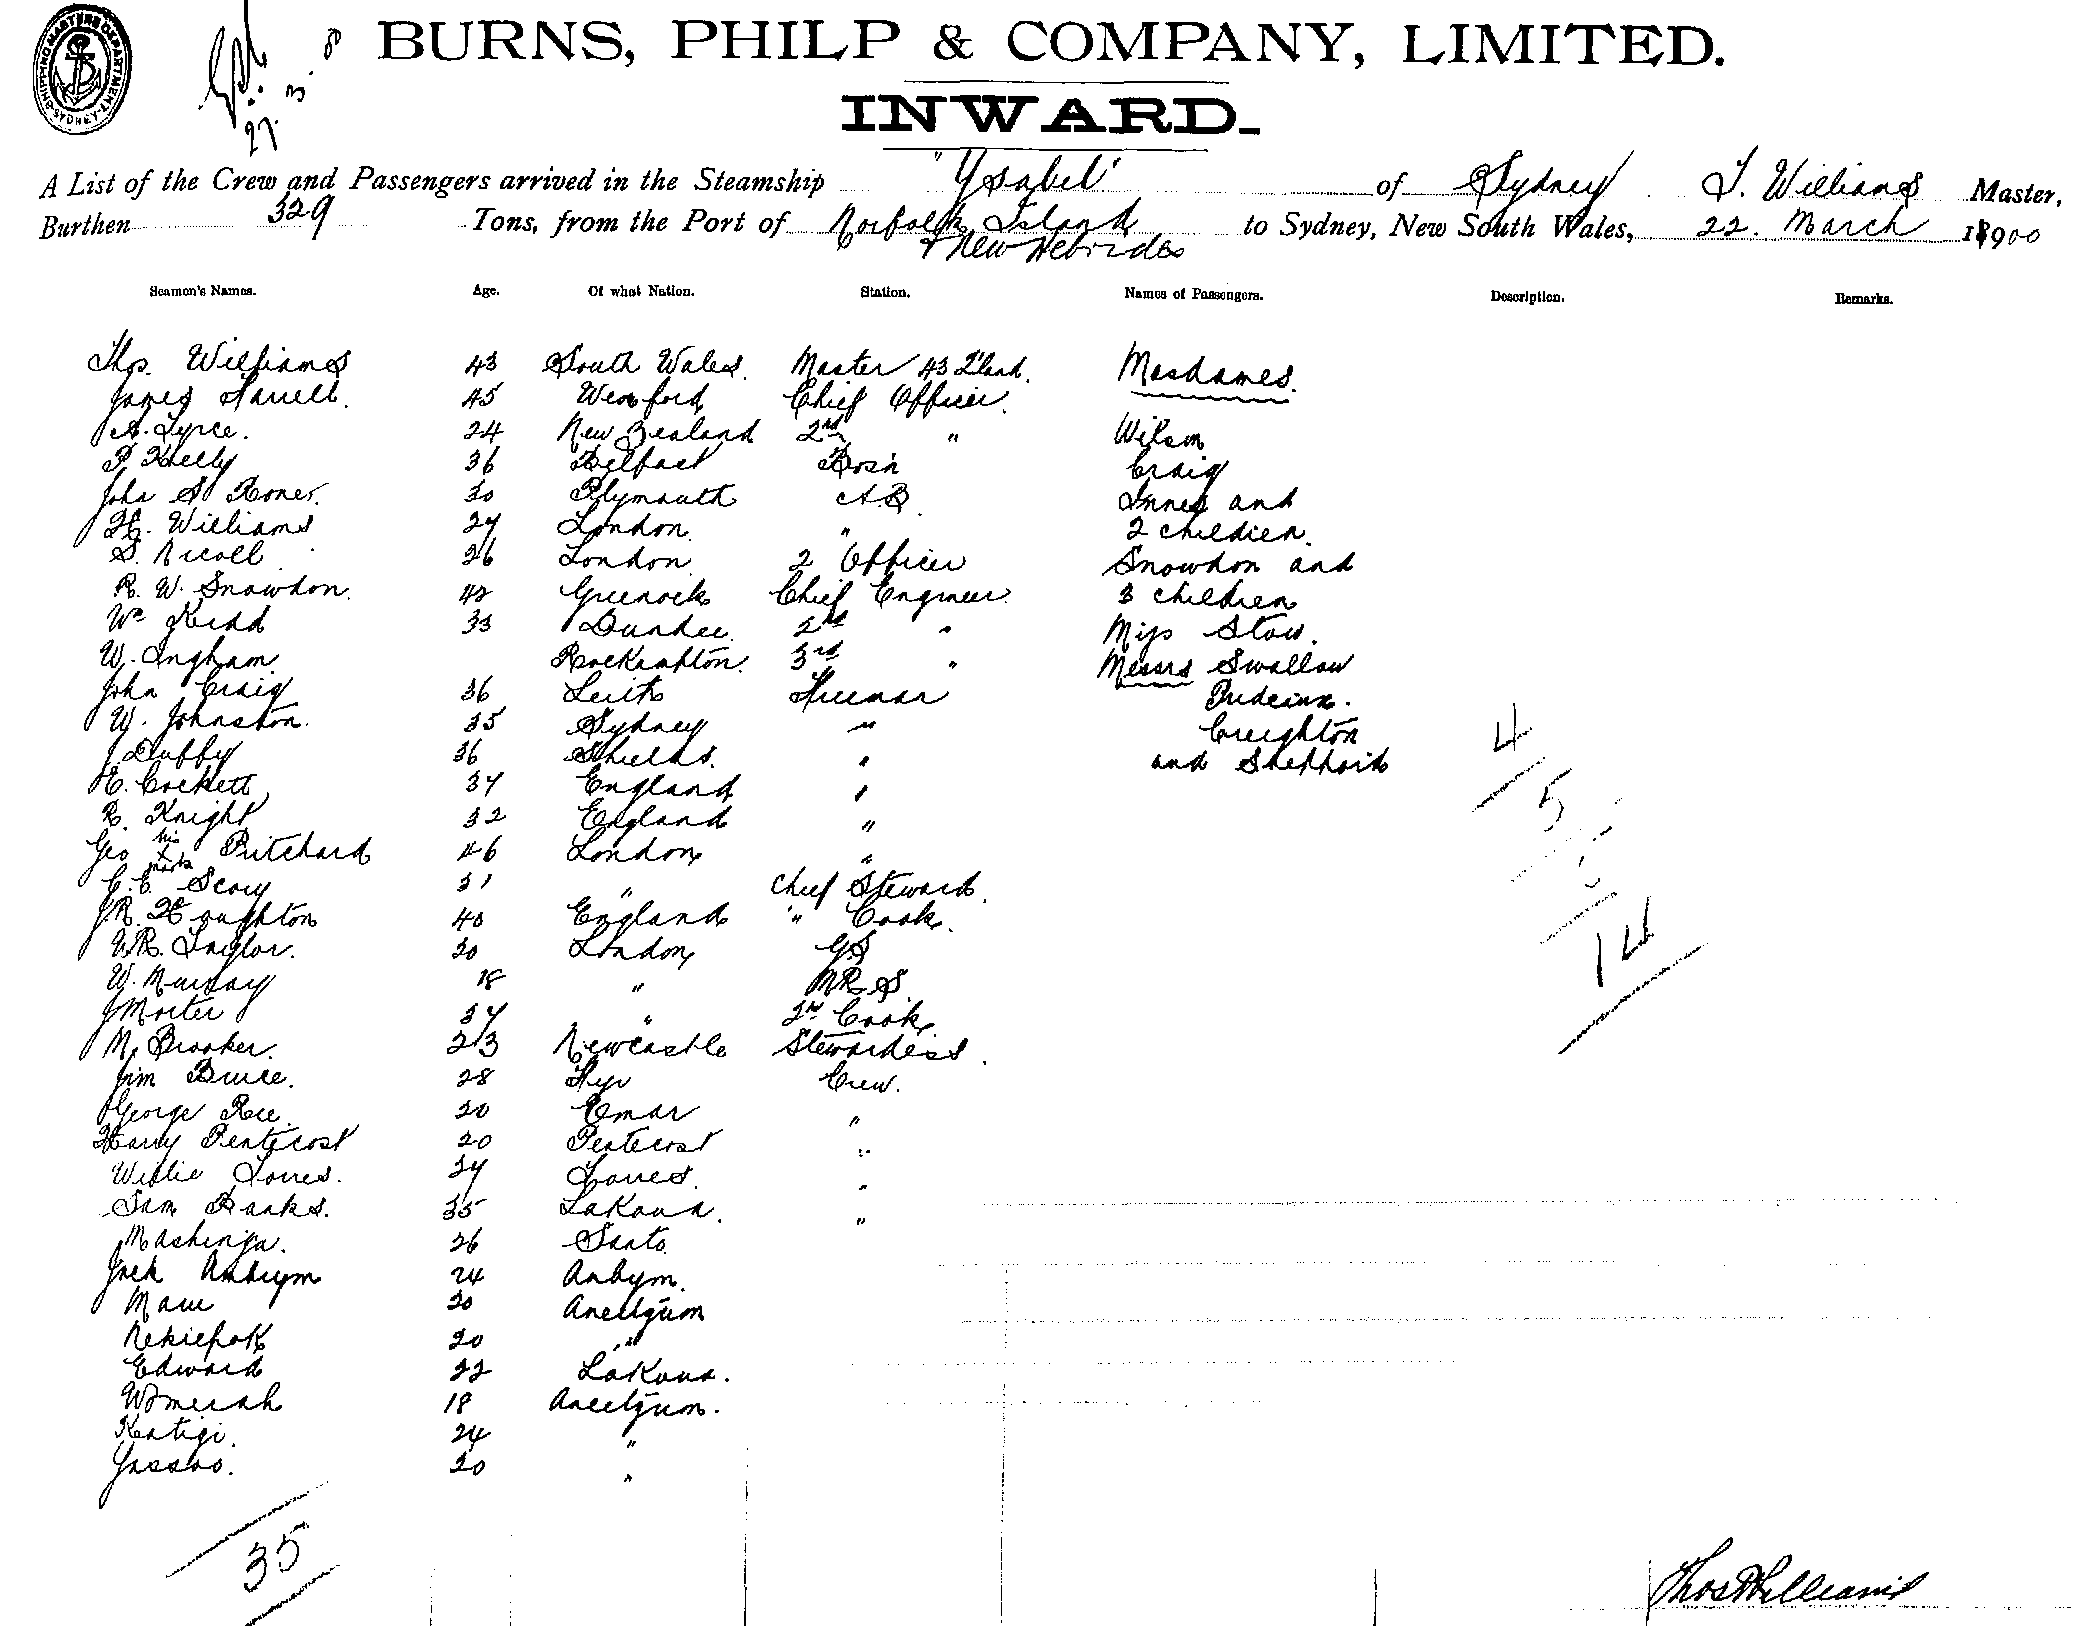 SHIPPING MASTERS DEPARTMENT SYDNEY
27. 3.
BURNS, PHILP & COMPANY, LIMITED.
INWARD.
A List of the Crew and Passengers arrived in the Steamship "Ysabel" of Sydney T. Williams Master,
Burthen 329 Tons, from the Port of Norfolk Island to Sydney, New South Wales, 22. March 1900
& New Hebrides
Seamen's Names. Age. Of what Nation. Station. Names of Passengers. Description. Remarks.
Thos. Williams 43 South Wales. Master 43 Mesdames.
James Farrell. 45 Wexford Chief Officer.
A. Tyrce. 24 New Zealand 2nd " Wilson
P. Kelly 36 Belfast Bosn Craig
John S 30 Plymouth A.B. Innes and
H. Williams 27 London. " 2 children.
S. Nicoll 26 London 2 Officer Snowdon and
R. W. Snowdon. 42 Greenock Chief Engineer. 3 children
Wm Kidd 33 Dundee. 2nd " Miss Stow.
W. Ingham. Rockampton. 3rd " Messrs Swallow
John Craig 36 Leith Fireman
W. Johnston. 35 Sydney " Creighton
J Duffy 36 Shields. " and
E. Cockett 37 England "
R. Knight 32 England "
Geo his x mark Pritchard 46 London "
C. E. Scory 31 " Chief Steward.
J. R. Houghton 40 England " Cook.
W.R. Taylor. 20 London GS
W. Murray 18 " M.R.S.
J Morter 37 " 2nd Cook.
M. Brooker. 23 Newcastle Stewardess.
Jim Bruce. 28 Crew.
George Ree. 20 Emar "
Harry Pentecost 20 Pentecost "
Willie Torres. 27 Torres. "
Sam Banks. 35 Lakona. "
Mashinga. 26 Santo.
Jack Ambrym 24 Anbym.
Maui 20 Aneityum
Nekiepok 20 "
Edward 22 Lakona.
Womerah 18 Aneityum.
Katigi. 24 "
Yassoo. 20 "
4
5
5
14
35
Thos Williams